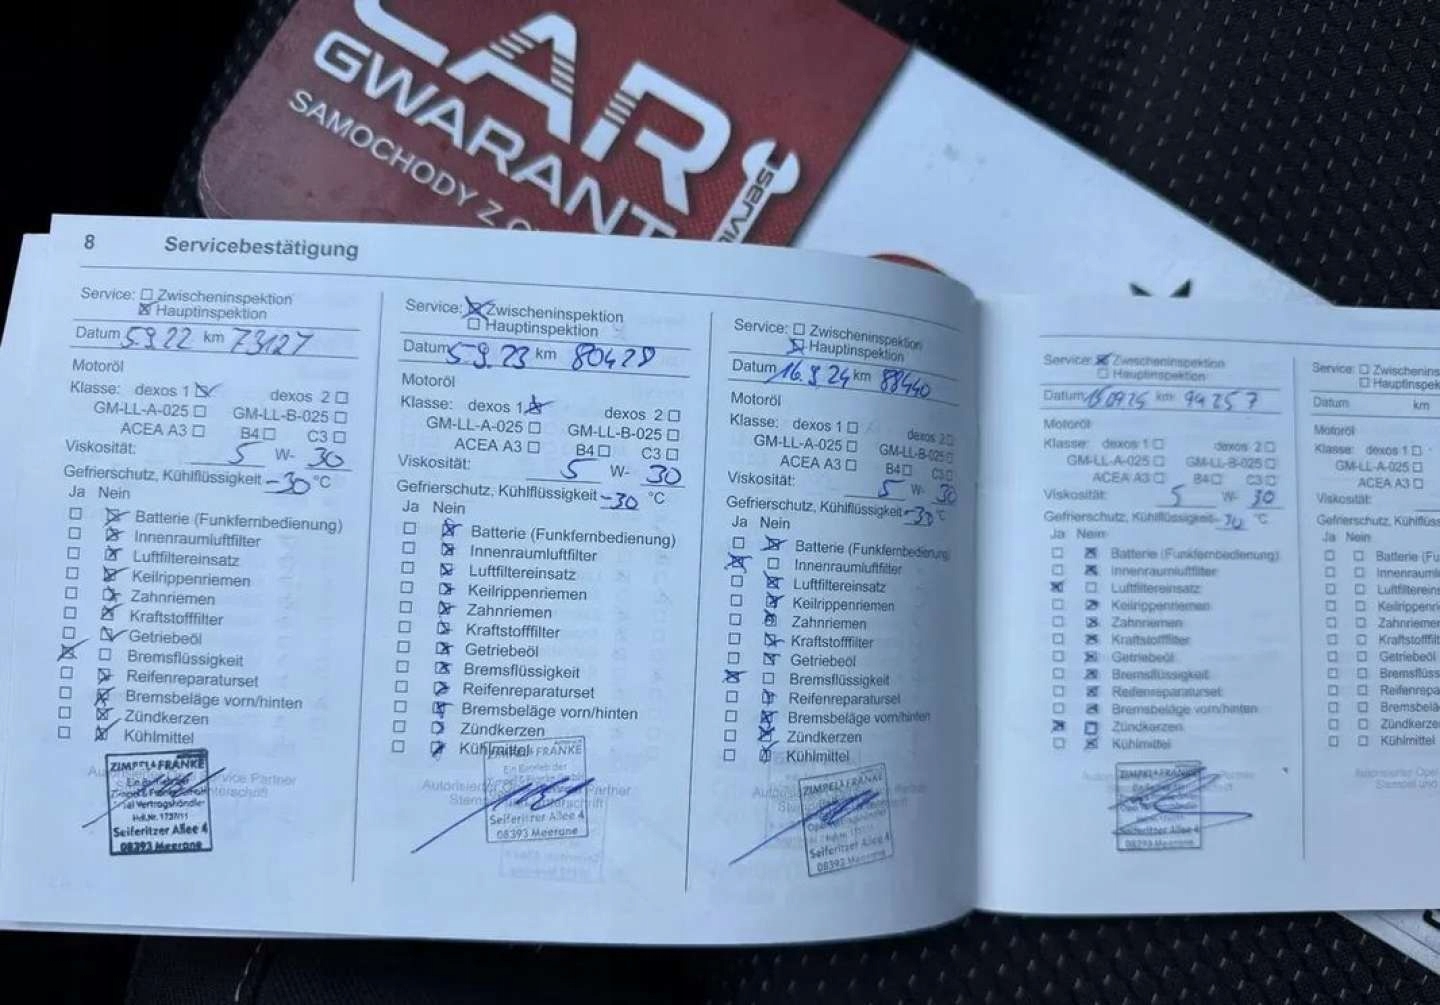 CAR
GWARANT
SAMOCHODY Z
SERVIC
8 Servicebestätigung
Service: Zwischeninspektion
Hauptinspektion
Datum 5.9.22 km 73127
Motoröl
Klasse: dexos 1 dexos 2
GM-LL-A-025 GM-LL-B-025
ACEA A3 B4 C3
Viskosität: 5 W- 30
Gefrierschutz, Kühlflüssigkeit -30 °C
Ja Nein
Batterie (Funkfernbedienung)
Innenraumluftfilter
Luftfiltereinsatz
Keilrippenriemen
Zahnriemen
Kraftstofffilter
Getriebeöl
Bremsflüssigkeit
Reifenreparaturset
Bremsbeläge vorn/hinten
Zündkerzen
Kühlmittel
ZIMPEL & FRANKE
Seiferitzer Allee 4
08393 Meerane
Service: Zwischeninspektion
Hauptinspektion
Datum 5.9.23 km 80428
Motoröl
Klasse: dexos 1 dexos 2
GM-LL-A-025 GM-LL-B-025
ACEA A3 B4 C3
Viskosität: 5 W- 30
Gefrierschutz, Kühlflüssigkeit -30 °C
Ja Nein
Batterie (Funkfernbedienung)
Innenraumluftfilter
Luftfiltereinsatz
Keilrippenriemen
Zahnriemen
Kraftstofffilter
Getriebeöl
Bremsflüssigkeit
Reifenreparaturset
Bremsbeläge vorn/hinten
Zündkerzen
Kühlmittel
& FRANKE
Ein Betrieb der
Seiferitzer Allee 4
08393 Meerane
Service: Zwischeninspektion
Hauptinspektion
Datum 16.9.24 km 88440
Motoröl
Klasse: dexos 1 dexos 2
GM-LL-A-025 GM-LL-B-025
ACEA A3 B4 C3
Viskosität: 5 W- 30
Gefrierschutz, Kühlflüssigkeit -30 °C
Ja Nein
Batterie (Funkfernbedienung)
Innenraumluftfilter
Luftfiltereinsatz
Keilrippenriemen
Zahnriemen
Kraftstofffilter
Getriebeöl
Bremsflüssigkeit
Reifenreparaturset
Bremsbeläge vorn/hinten
Zündkerzen
Kühlmittel
ZIMPEL & FRANKE
Seiferitzer Allee 4
08393 Meerane
Service: Zwischeninspektion
Hauptinspektion
Datum 15.09.25 km 94257
Motoröl
Klasse: dexos 1 dexos 2
GM-LL-A-025 GM-LL-B-025
ACEA A3 B4 C3
Viskosität: 5 W- 30
Gefrierschutz, Kühlflüssigkeit -30 °C
Ja Nein
Batterie (Funkfernbedienung)
Innenraumluftfilter
Luftfiltereinsatz
Keilrippenriemen
Zahnriemen
Kraftstofffilter
Getriebeöl
Bremsflüssigkeit
Reifenreparaturset
Bremsbeläge vorn/hinten
Zündkerzen
Kühlmittel
ZIMPEL & FRANKE
Seiferitzer Allee 4
08393 Meerane
Service: Zwischenins
Hauptinspek
Datum km
Motoröl
Klasse: dexos 1
GM-LL-A-025
ACEA A3
Viskosität:
Gefrierschutz, Kühlflüss
Ja Nein
Batterie (Fu
Innenraumlu
Luftfiltereins
Keilrippenri
Zahnriemen
Kraftstofffilt
Getriebeöl
Bremsflüss
Reifenrepa
Bremsbelä
Zündkerzen
Kühlmittel
Autorisierter Opel
Stempel und